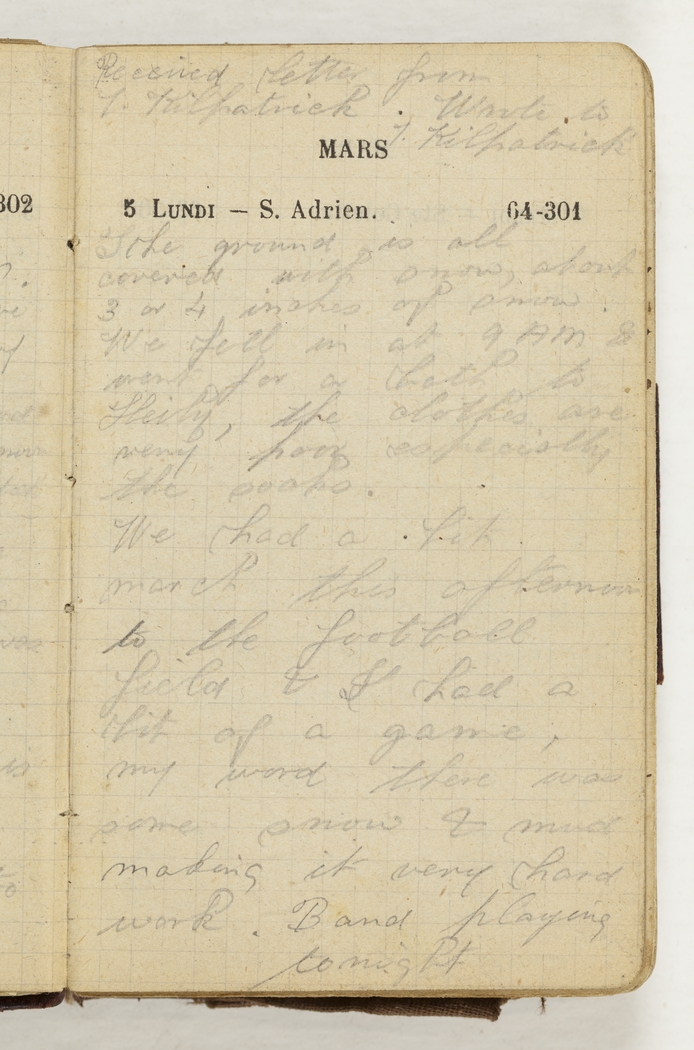 Received letter from
J. Kilpatrick. Wrote to
J. Kilpatrick
MARS
302
5 LUNDI — S. Adrien. 64-301
The ground is all
covered with snow, about
3 or 4 inches of snow.
We fell in at 9 AM &
went for a bath to
Heily, the clothes are
very poor especially
the socks.
We had a bit
march this afternoon
to the football
field & I had a
bit of a game,
my word there was
some snow & mud
making it very hard
work. Band playing
tonight